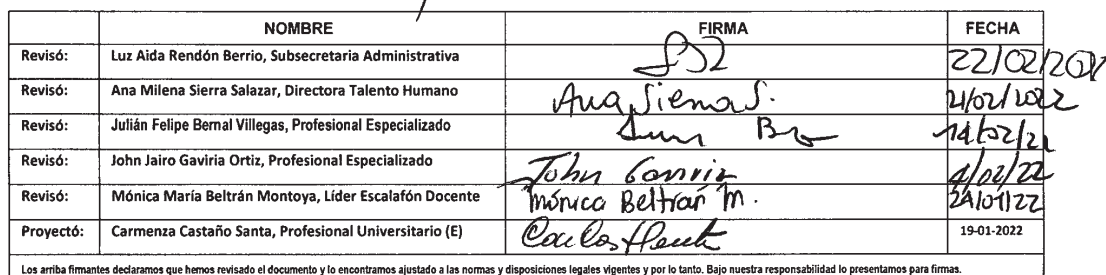 NOMBRE FIRMA FECHA
Revisó: Luz Aida Rendón Berrio, Subsecretaria Administrativa 22/02/2022
Revisó: Ana Milena Sierra Salazar, Directora Talento Humano Ana Sierra S. 21/02/2022
Revisó: Julián Felipe Bernal Villegas, Profesional Especializado 14/02/22
Revisó: John Jairo Gaviria Ortiz, Profesional Especializado John Gaviria 4/02/22
Revisó: Mónica María Beltrán Montoya, Líder Escalafón Docente Mónica Beltrán M. 24/01/22
Proyectó: Carmenza Castaño Santa, Profesional Universitario (E) 19-01-2022
Los arriba firmantes declaramos que hemos revisado el documento y lo encontramos ajustado a las normas y disposiciones legales vigentes y por lo tanto. Bajo nuestra responsabilidad lo presentamos para firmas.